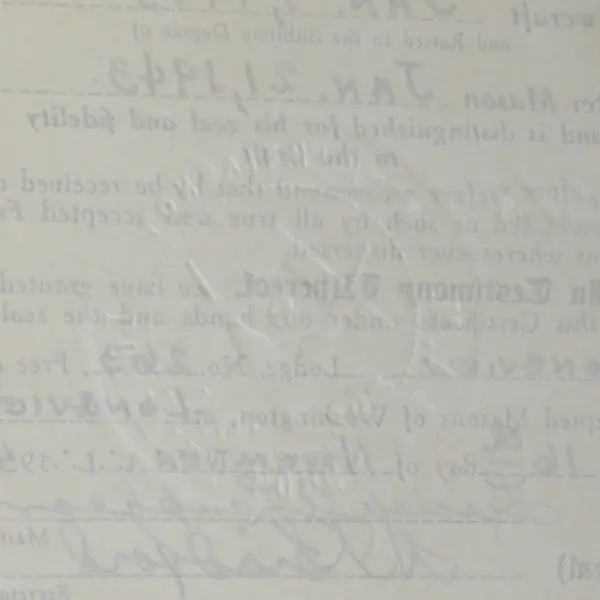 wcraft JAN. 
and Raised to the Sublime Degree of
ter Mason JAN. 21, 1943.
and is distinguished for his zeal and fidelity
to the Craft
refore recommend that he be received a
as such by all true and accepted Fr
ns wheresoever dispersed.
In Testimony Whereof, we have granted
this Certificate under our hands and the seal
Lodge. No. 263, Free a
pted Masons of Washington, at LONGVIE
16 day of A∴L∴
Mast
eal)